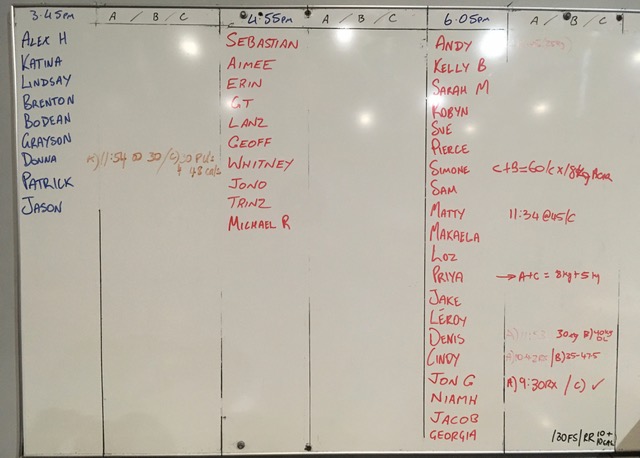 3:45pm A / B / C 4:55pm A / B / C 6:05pm A / B / C
ALEX H
KATINA
LINDSAY
BRENTON
BODEAN
GRAYSON
DONNA 11:54 @ 30 / C)
PATRICK
JASON
SEBASTIAN
AIMEE
ERIN
GT
LANZ
GEOFF
WHITNEY
JONO
TRINZ
MICHAEL R
ANDY
KELLY B
SARAH M
ROBYN
SUE
PIERCE
SIMONE C+B=60/C X/8kg
SAM
MATTY 11:34 @45/C
MAKAELA
LOZ
PRIYA → A+C = 8kg + 5kg
JAKE
LEROY
DENIS 30kg B) 40kg DL
CINDY /B)35-47.5
JON G A) 9:30RX / C) ✓
NIAMH
JACOB
GEORGIA /30FS/RR 10+